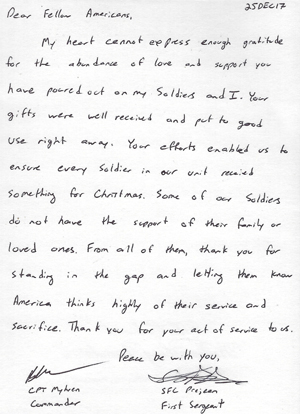 25DEC17
Dear Fellow Americans,
My heart cannot express enough gratitude
for the abundance of love and support you
have poured out on my Soldiers and I. Your
gifts were well received and put to good
use right away. Your efforts enabled us to
ensure every Soldier in our unit recieved
something for Christmas. Some of our Soldiers
do not have the support of their family or
loved ones. From all of them, thank you for
standing in the gap and letting them know
America thinks highly of their service and
sacrifice. Thank you for your act of service to us.
Peace be with you,
CPT SFC Prejean
Commander First Sergeant